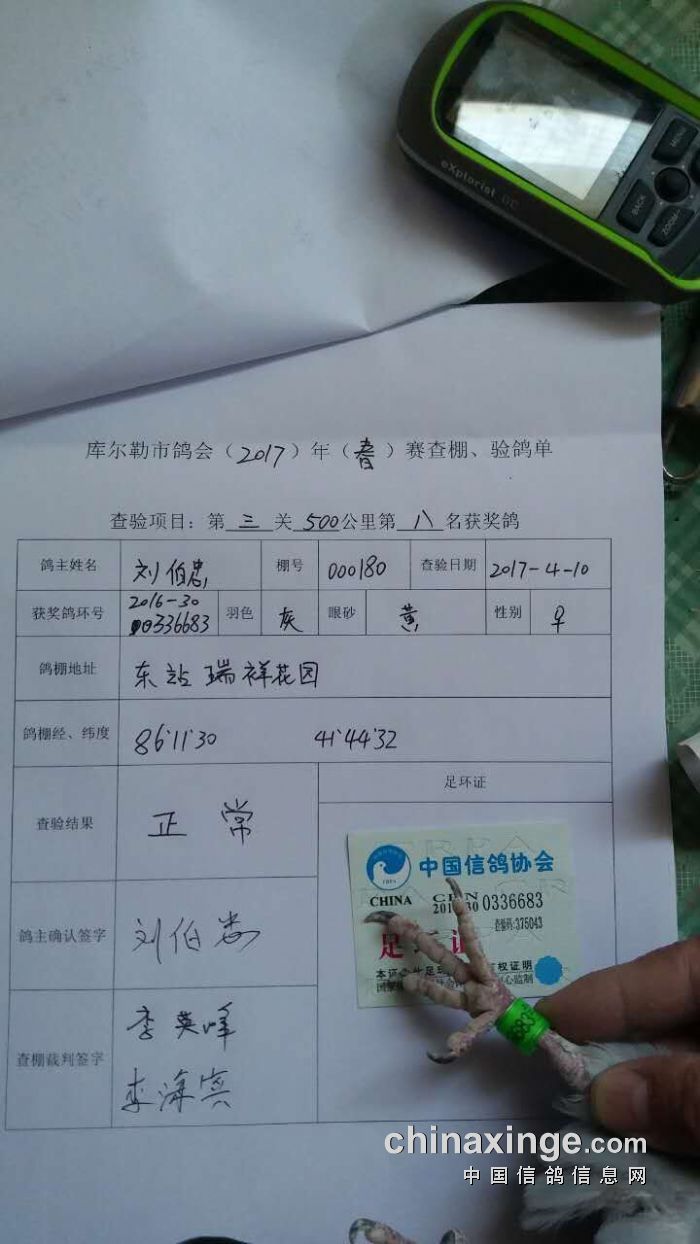 eXplorist GC
MENU
BACK
ZOOM-
库尔勒市鸽会(2017)年(春)赛查棚、验鸽单
查验项目:第三关500公里第八名获奖鸽
鸽主姓名 刘伯忠 棚号 000180 查验日期 2017-4-10
获奖鸽环号 2016-30 00336683 羽色 灰 眼砂 黄 性别 ♀
鸽棚地址 东站瑞祥花园
鸽棚经、纬度 86°11'30 41°44'32
查验结果 正常
足环证
中国信鸽协会
CHINA
0336683
查验码:375043
足
权证明
鸽主确认签字 刘伯忠
查棚裁判签字 李英峰
chinaxinge.com
中国信鸽信息网